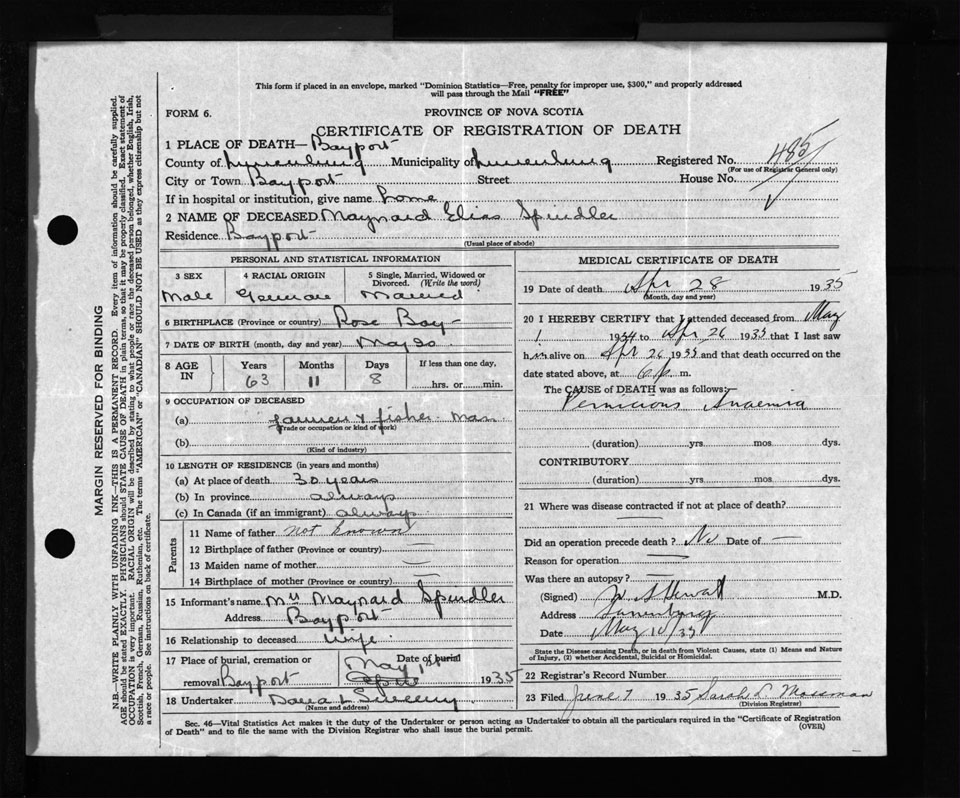 This form if placed in an envelope, marked "Dominion Statistics—Free, penalty for improper use, $300," and properly addressed
will pass through the Mail "FREE"
FORM 6.
PROVINCE OF NOVA SCOTIA
CERTIFICATE OF REGISTRATION OF DEATH
1 PLACE OF DEATH— Bayport
County of Lunenburg Municipality of Lunenburg Registered No. 485
(For use of Registrar General only)
City or Town Bayport Street House No.
If in hospital or institution, give name home
2 NAME OF DECEASED Maynard Elias Spindler
Residence Bayport
(Usual place of abode)
PERSONAL AND STATISTICAL INFORMATION
3 SEX 4 RACIAL ORIGIN 5 Single, Married, Widowed or Divorced. (Write the word)
Male German Married
6 BIRTHPLACE (Province or country) Rose Bay
7 DATE OF BIRTH (month, day and year) May 20
8 AGE IN Years Months Days If less than one day,
63 11 8 hrs. or min.
9 OCCUPATION OF DECEASED
(a) farmer & fisher man
(Trade or occupation or kind of work)
(b)
(Kind of industry)
10 LENGTH OF RESIDENCE (in years and months)
(a) At place of death 30 years
(b) In province always
(c) In Canada (if an immigrant) always
Parents
11 Name of father not known
12 Birthplace of father (Province or country) —
13 Maiden name of mother —
14 Birthplace of mother (Province or country) —
15 Informant's name Mrs Maynard Spindler
Address Bayport
16 Relationship to deceased wife
17 Place of burial, cremation or Date of burial
removal Bayport May 1st 1935
18 Undertaker
(Name and address)
MEDICAL CERTIFICATE OF DEATH
19 Date of death Apr 28 1935
(Month, day and year)
20 I HEREBY CERTIFY that I attended deceased from May
1 1934 to Apr 26 1935 that I last saw
him alive on Apr 26 1935 and that death occurred on the
date stated above, at 6 p. m.
The CAUSE of DEATH was as follows:—
Pernicious Anaemia
(duration) yrs mos dys.
CONTRIBUTORY
(duration) yrs mos dys.
21 Where was disease contracted if not at place of death?
Did an operation precede death? No Date of —
Reason for operation —
Was there an autopsy? —
(Signed) M.D.
Address Lunenburg
Date May 10/35
State the Disease causing Death, or in death from Violent Causes, state (1) Means and Nature
of Injury, (2) whether Accidental, Suicidal or Homicidal.
22 Registrar's Record Number
23 Filed June 7 1935 Sarah Mossman
(Division Registrar)
Sec. 46—Vital Statistics Act makes it the duty of the Undertaker or person acting as Undertaker to obtain all the particulars required in the "Certificate of Registration
of Death" and to file the same with the Division Registrar who shall issue the burial permit.
(OVER)
MARGIN RESERVED FOR BINDING
N.B.—WRITE PLAINLY WITH UNFADING INK—THIS IS A PERMANENT RECORD. Every item of information should be carefully supplied.
AGE should be stated EXACTLY. PHYSICIANS should STATE CAUSE OF DEATH in plain terms, so that it may be properly classified. Exact statement of
OCCUPATION is very important. RACIAL ORIGIN will be described by stating to what people or race the deceased person belonged, whether English, Irish,
Scottish, French, German, Russian, Ruthenian, etc. The terms "AMERICAN" or "CANADIAN" SHOULD NOT BE USED as they express citizenship but not
a race or people. See instructions on back of certificate.